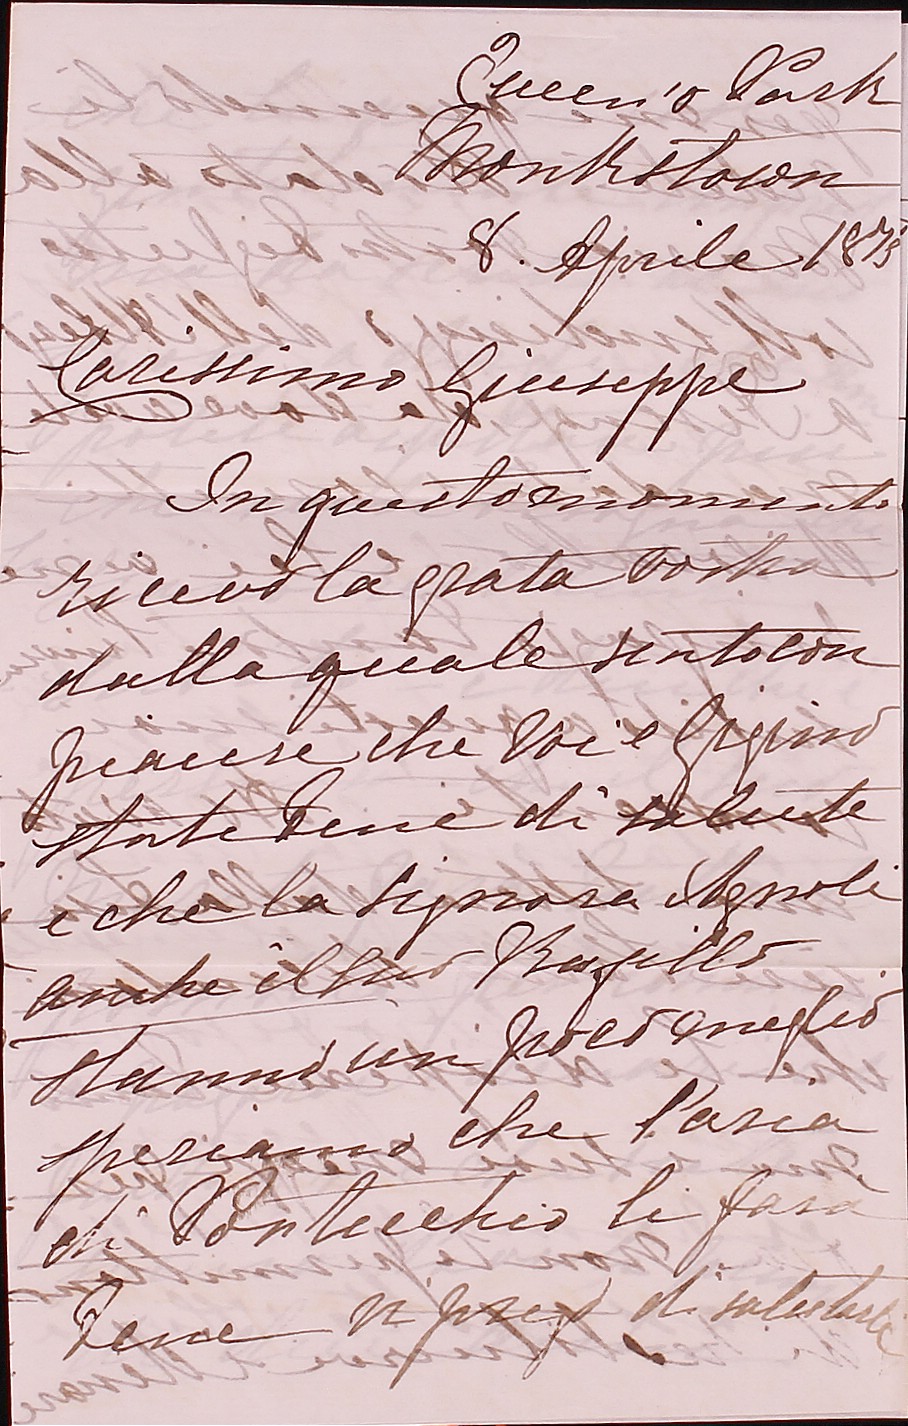 Queen's Park
Monkstown
8. Aprile 1875
Carissimo Giuseppe
In questo momento
ricevo la grata vostra
dalla quale sento con
piacere che voi e Gigino
state bene di salute
e che la Signora Agnoli
anche il suo Ragillo
stanno un poco meglio
speriamo che l'aria
di Pontecchio li farà
bene vi prego di salutarli